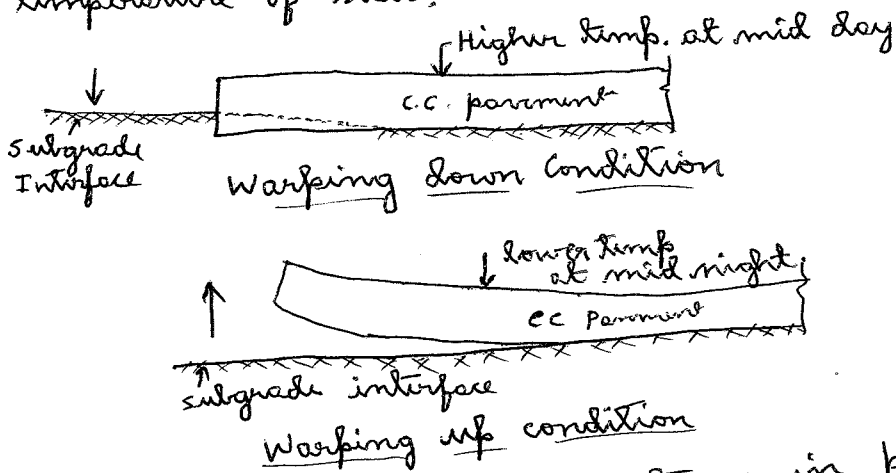 temperature of slab.
Higher temp. at mid day
C.C. pavement
Subgrade
Interface
Warping down condition
lower temp
at mid night.
CC Pavement
subgrade interface
Warping up condition
in